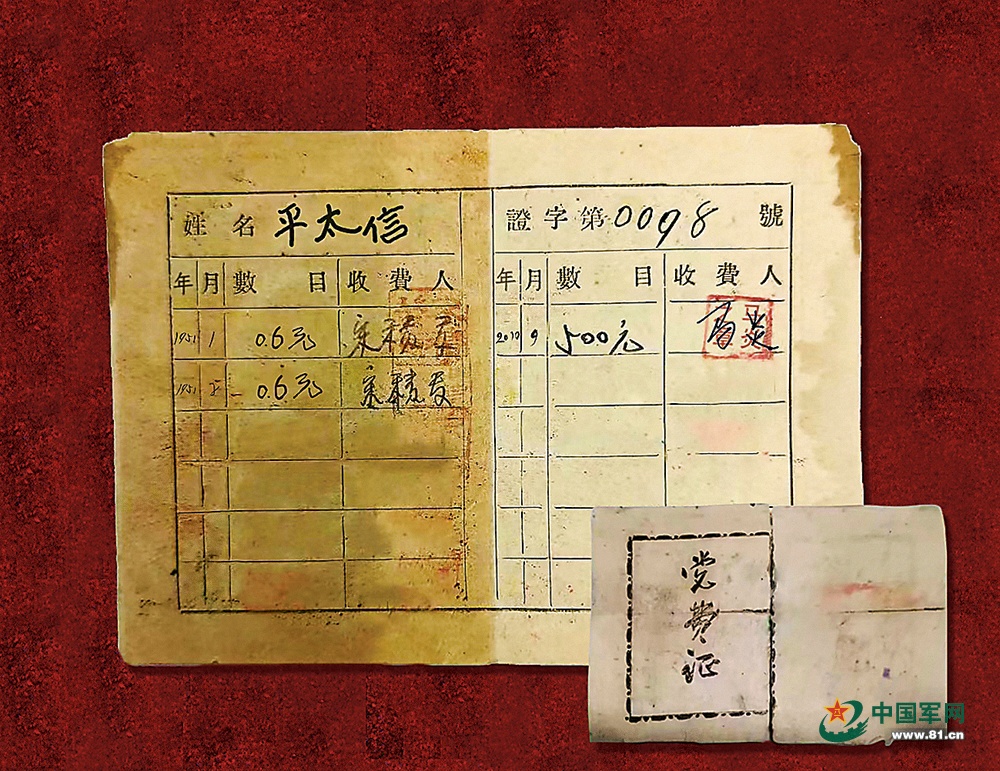 姓名 平太信
年 月 數目 收費人
1951 1 0.6元
1951 5 0.6元
證字第0098號
年 月 數目 收費人
2010 9 500元
党费证
中国军网
www.81.cn